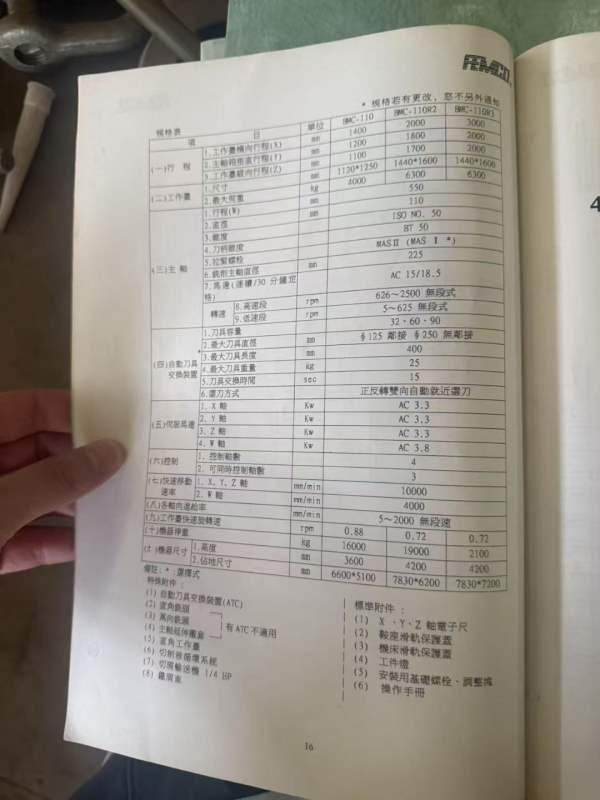 FEMCO
* 規格若有更改，恕不另外通知
規格表
項 目 單位 BMC-110 BMC-110R2 BMC-110R3
(一)行 程 1.工作臺橫向行程(X) mm 1400 2000 3000
2.主軸箱垂直行程(Y) mm 1200 1800 2000
3.工作臺縱向行程(Z) mm 1100 1700 2000
(二)工作臺 1.尺寸 mm 1120*1250 1440*1600 1440*1600
2.最大荷重 kg 4000 6300 6300
(三)主 軸 1.行程(W) mm 550
2.直徑 mm 110
3.錐度 ISO NO. 50
4.刀柄錐度 BT 50
5.拉緊螺栓 MASⅡ (MAS Ⅰ *)
6.銑削主軸直徑 mm 225
7.馬達(連續/30 分鐘規格) AC 15/18.5
轉速 8.高速段 rpm 626～2500 無段式
9.低速段 rpm 5～625 無段式
(四)自動刀具交換裝置 * 1.刀具容量 32、60、90
2.最大刀具直徑 mm §125 鄰接 §250 無鄰接
3.最大刀具長度 mm 400
4.最大刀具重量 kg 25
5.刀具交換時間 sec 15
6.選刀方式 正反轉雙向自動就近選刀
(五)伺服馬達 1. X 軸 Kw AC 3.3
2. Y 軸 Kw AC 3.3
3. Z 軸 Kw AC 3.3
4. W 軸 Kw AC 3.8
(六)控制 1. 控制軸數 4
2. 可同時控制軸數 3
(七)快速移動速率 1. X、Y、Z 軸 mm/min 10000
2. W 軸 mm/min 4000
(八)各軸向進給率 mm/min 5～2000 無段速
(九)工作臺快速旋轉速 rpm 0.88 0.72 0.72
(十)機器淨重 kg 16000 19000 2100
機器尺寸 1.高度 mm 3600 4200 4200
2.佔地尺寸 mm 6600*5100 7830*6200 7830*7200
備註：* :選擇式
特殊附件：
(1) 自動刀具交換裝置(ATC)
(2) 直角銑頭
(3) 萬向銑頭
(4) 主軸延伸護套
有 ATC 不適用
(5) 直角工作臺
(6) 切削液循環系統
(7) 切屑輸送機 1/4 HP
(8) 鐵屑車
標準附件：
(1) X 、Y、Z 軸電子尺
(2) 鞍座滑軌保護蓋
(3) 機床滑軌保護蓋
(4) 工件燈
(5) 安裝用基礎螺栓、調整塊
(6) 操作手冊
16
4